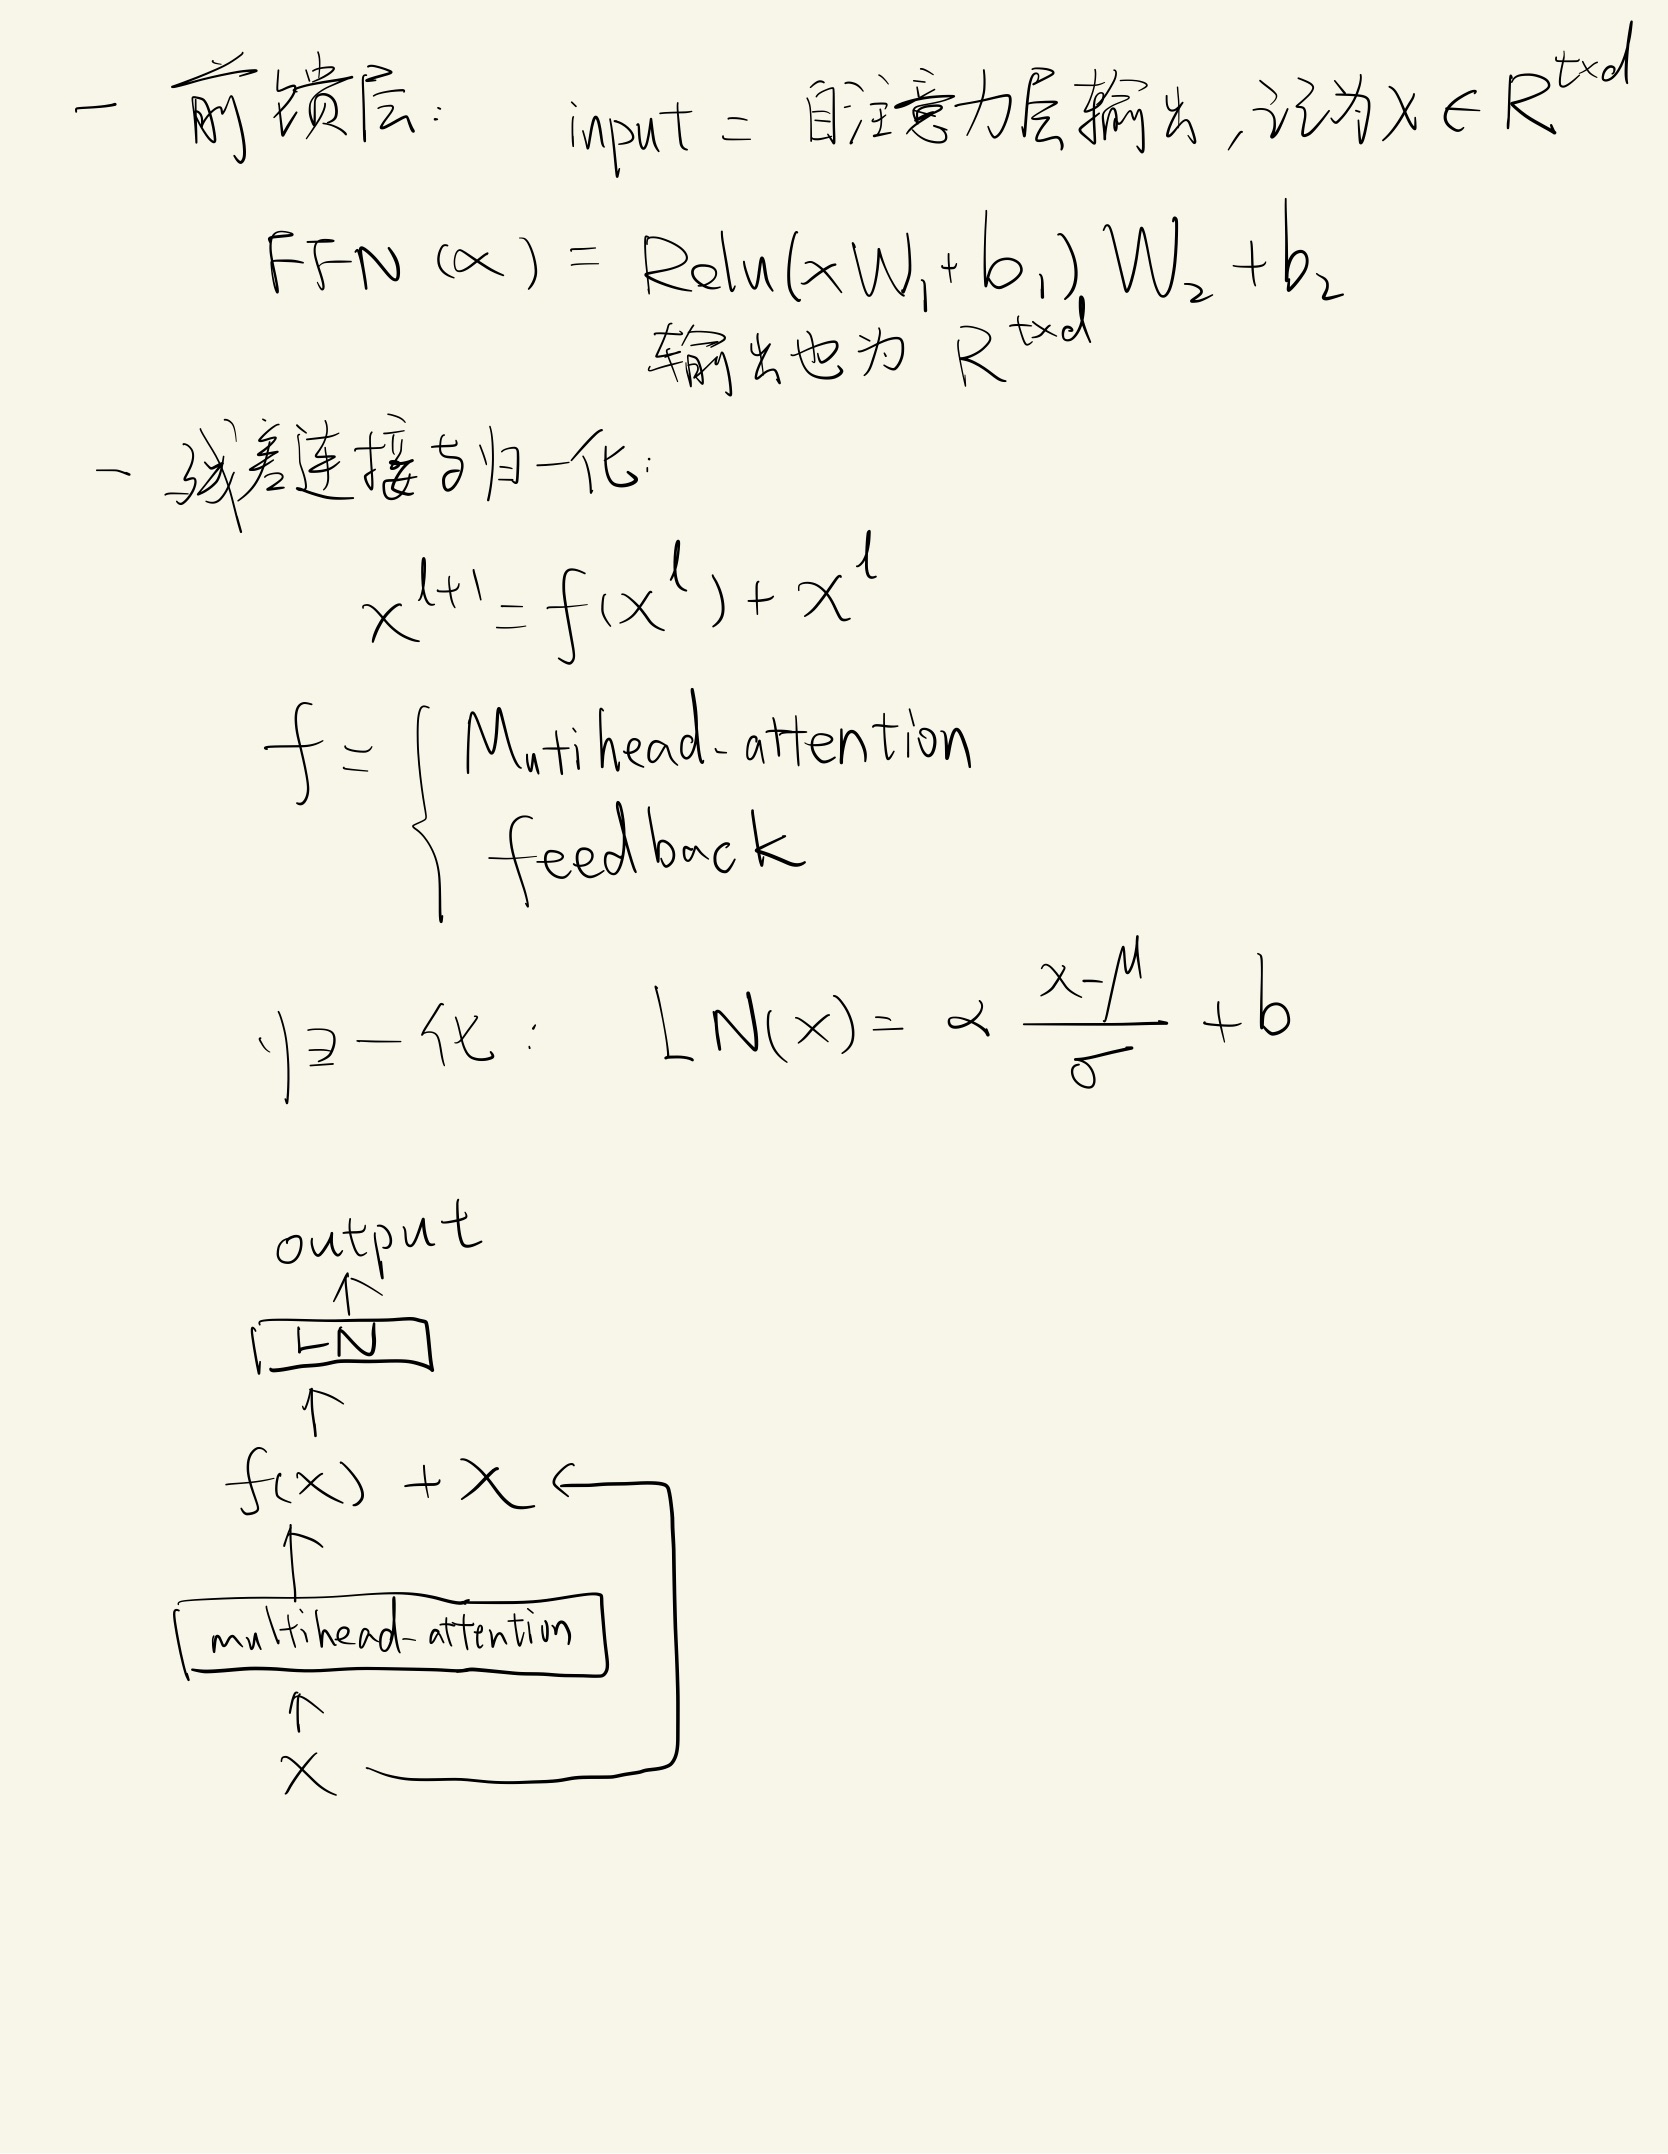 - 前馈层: input = 自注意力层输出,记为 x ∈ R^{t×d}
FFN(x) = Relu(xW₁+b₁)W₂+b₂
输出也为 R^{t×d}
- 残差连接与归一化:
x^{l+1} = f(x^l) + x^l
f = { Mutihead-attention
feedback
归一化: LN(x) = α \frac{x-μ}{σ} + b
output
↑
LN
↑
f(x) + x ←
↑
multihead-attention
↑
x